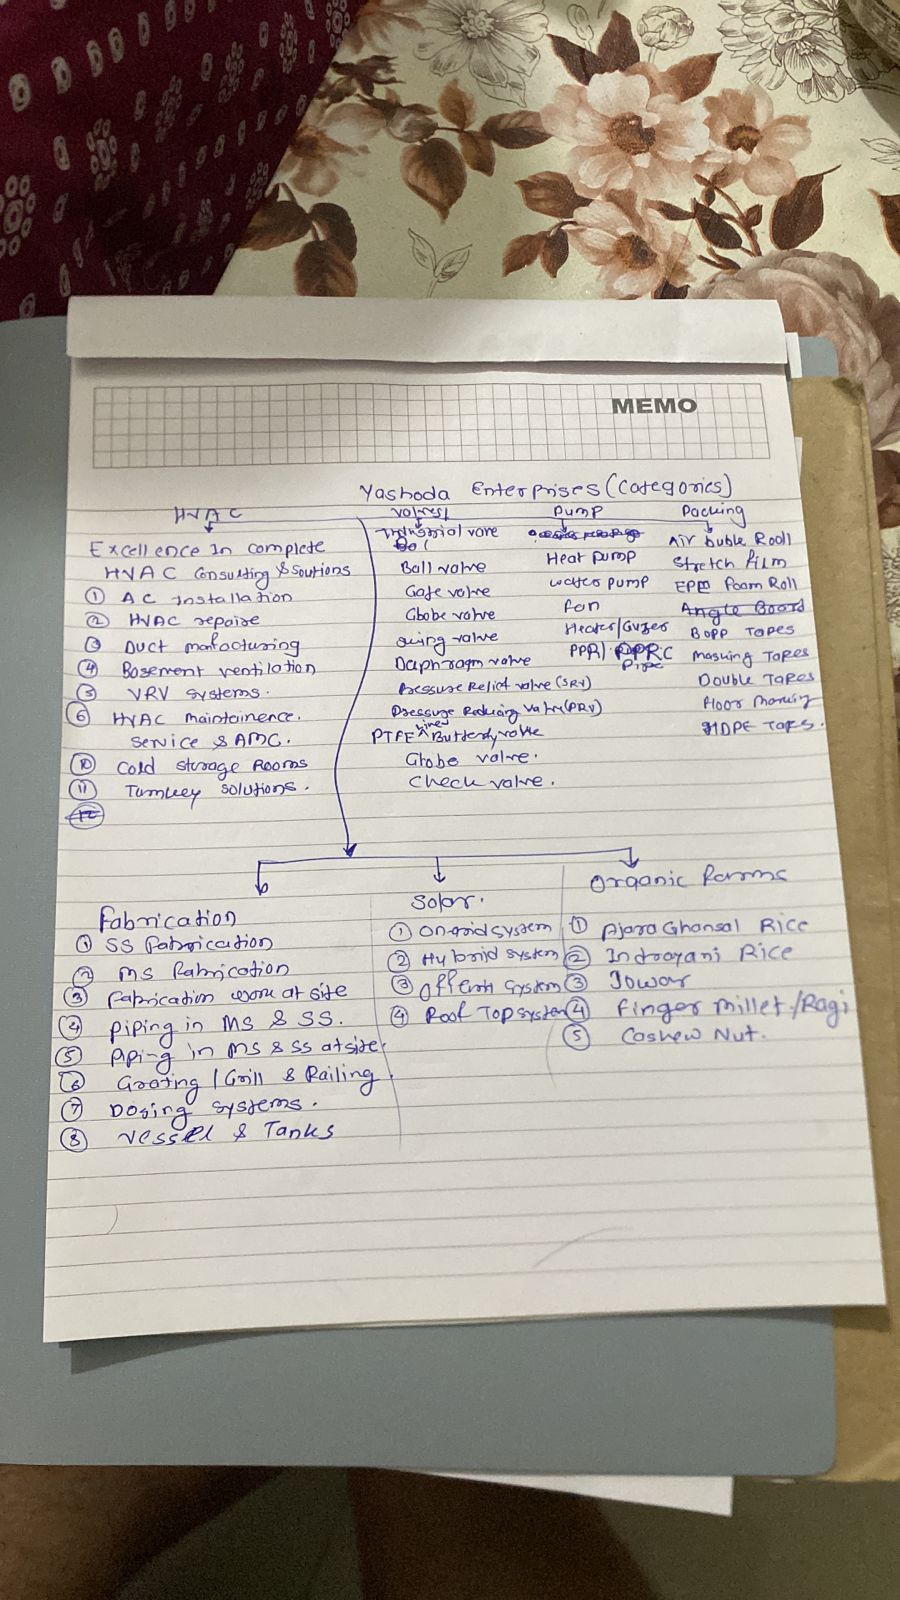 MEMO
Yashoda Enterprises (Categories)
HVAC
Excellence In complete
HVAC Consulting & Soutions
① AC Installation
② HVAC repaire
③ Duct manfacturing
④ Basement ventilation
⑤ VRV Systems.
⑥ HVAC maintainence.
Service & AMC.
⑩ Cold Storage Rooms
⑪ Turnkey Solutions.
⑫
Valves
Industrial vave
Ball valve
Gate valve
Gbobe valve
valve
Daiphragm valve
Pressure Relief valve (SRV)
Pressure Reducing Valve (PRV)
PTFE Lined Butterfly valve
Globe valve.
Check valve.
Pump
Heat pump
water pump
fan
Heater/Guzer
PPR/ PPRC
Pipe
Packing
Air Buble Rooll
Stretch Film
EPE Foam Roll
Angle Board
BOPP Tapes
Masking Tapes
Double Tapes
Floor Marking
HDPE Tapes.
Fabrication
① SS Fabrication
② MS Fabrication
③ Fabrication work at site
④ Piping in MS & SS.
⑤ Piping in MS & SS at site.
⑥ Grating / Grill & Railing.
⑦ Dosing Systems.
⑧ Vessel & Tanks
Solar.
① Ongrid System
② Hybrid System
③ System
④ Roof Top System
Organic Farms
① Ajara Ghansal Rice
② Indrayani Rice
③ Jowar
④ Finger Millet/Ragi
⑤ Cashew Nut.